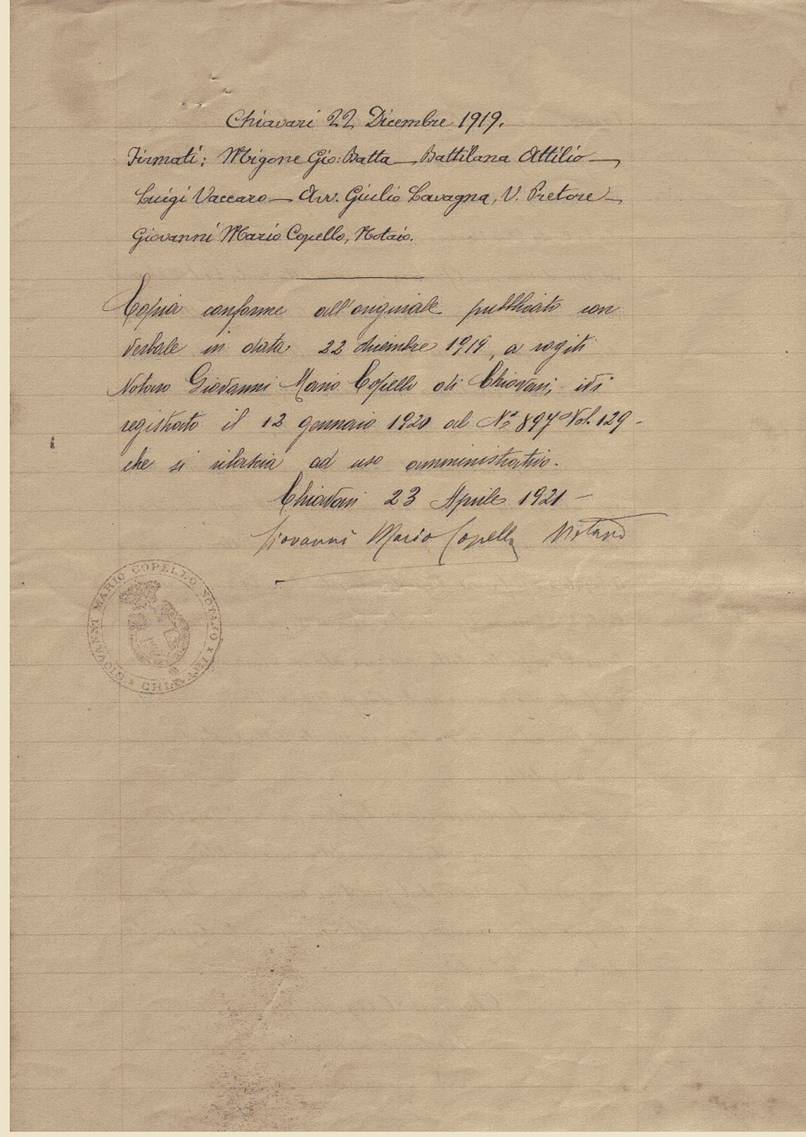 Chiavari 22 Dicembre 1919.
Firmati: Migone Gio: Batta – Battilana Attilio –
Luigi Vaccaro – Avv. Giulio Cavagna, V. Pretore –
Giovanni Mario Copello, Notaio.
Copia conforme all'originale pubblicato con
verbale in data 22 dicembre 1919, a rogiti
Notaro Giovanni Mario Copello di Chiavari, ivi
registrato il 12 gennaio 1920 al N° 897 Vol. 129 –
che si rilascia ad uso amministrativo.
Chiavari 23 Aprile 1921 –
Giovanni Mario Copello Notaro
GIOVANNI MARIO COPELLO NOTAJO